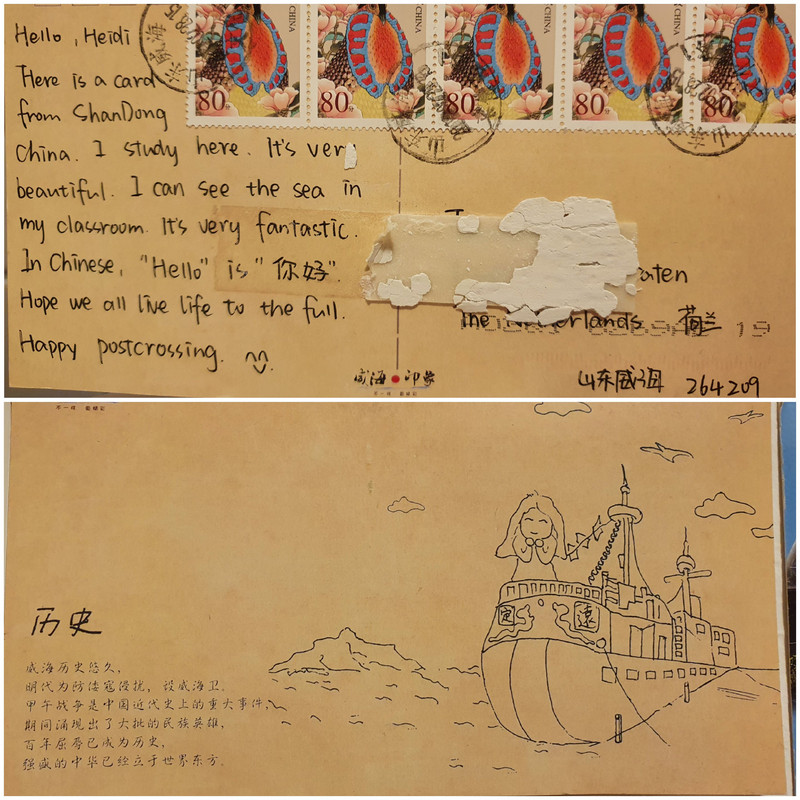 Hello, Heidi
Here is a card
from ShanDong
China. I study here. It's very
beautiful. I can see the sea in
my classroom. It's very fantastic.
In Chinese, "Hello" is "你好".
Hope we all live life to the full.
Happy postcrossing.
CHINA
CHINA
CHINA
CHINA
CHINA
80分
80分
80分
80分
80
The Netherlands 荷兰
19
山东威海 264209
威海印象
历史
威海历史悠久,
明代为防倭寇侵扰,设威海卫。
甲午战争是中国近代史上的重大事件,
期间涌现出了大批的民族英雄,
百年屈辱已成为历史,
强盛的中华已经立于世界东方。
定 远